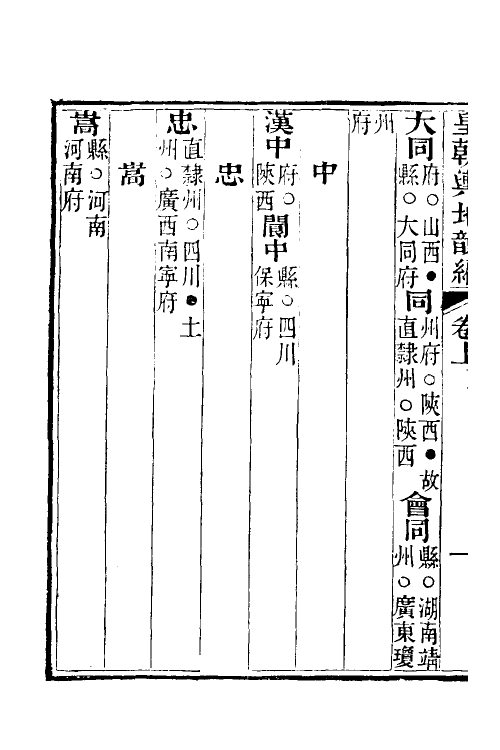 皇朝輿地韻編 卷上 一
大同府○山西●縣○大同府同州府○陝西●故直隸州○陝西會同縣○湖南靖州○廣東瓊
州府
中
漢中府○陝西閬中縣○四川保寧府
忠
忠直隸州○四川●土州○廣西南寧府
嵩
嵩縣○河南河南府